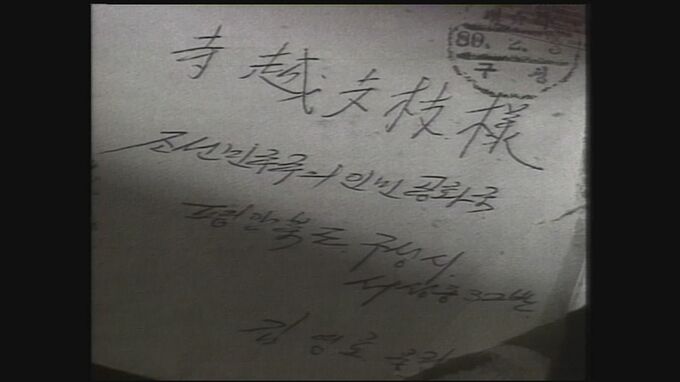 寺越友枝様
조선민주주의 인민 공화국
평안북도. 구성시.
32반
김 영호 올림
구 성